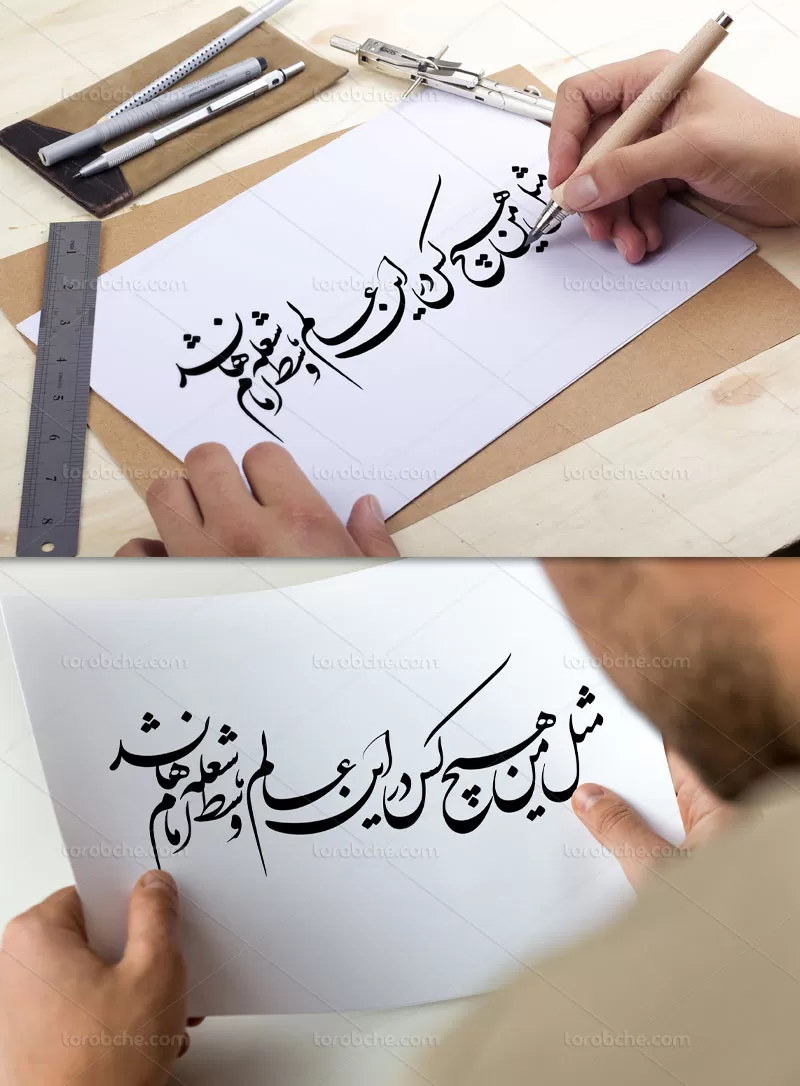 torobche.com torobche.com torobche.com
مثل من هیچ کس در این عالم وسط شعله ها امام نشد
torobche.com torobche.com torobche.com
1 3 4 5 6 7 8
torobche.com torobche.com torobche.com
torobche.com torobche.com torobche.com
مثل من هیچ کس در این عالم وسط شعله ها امام نشد
torobche.com torobche.com torobche.com
torobche.com torobche.com torobche.com